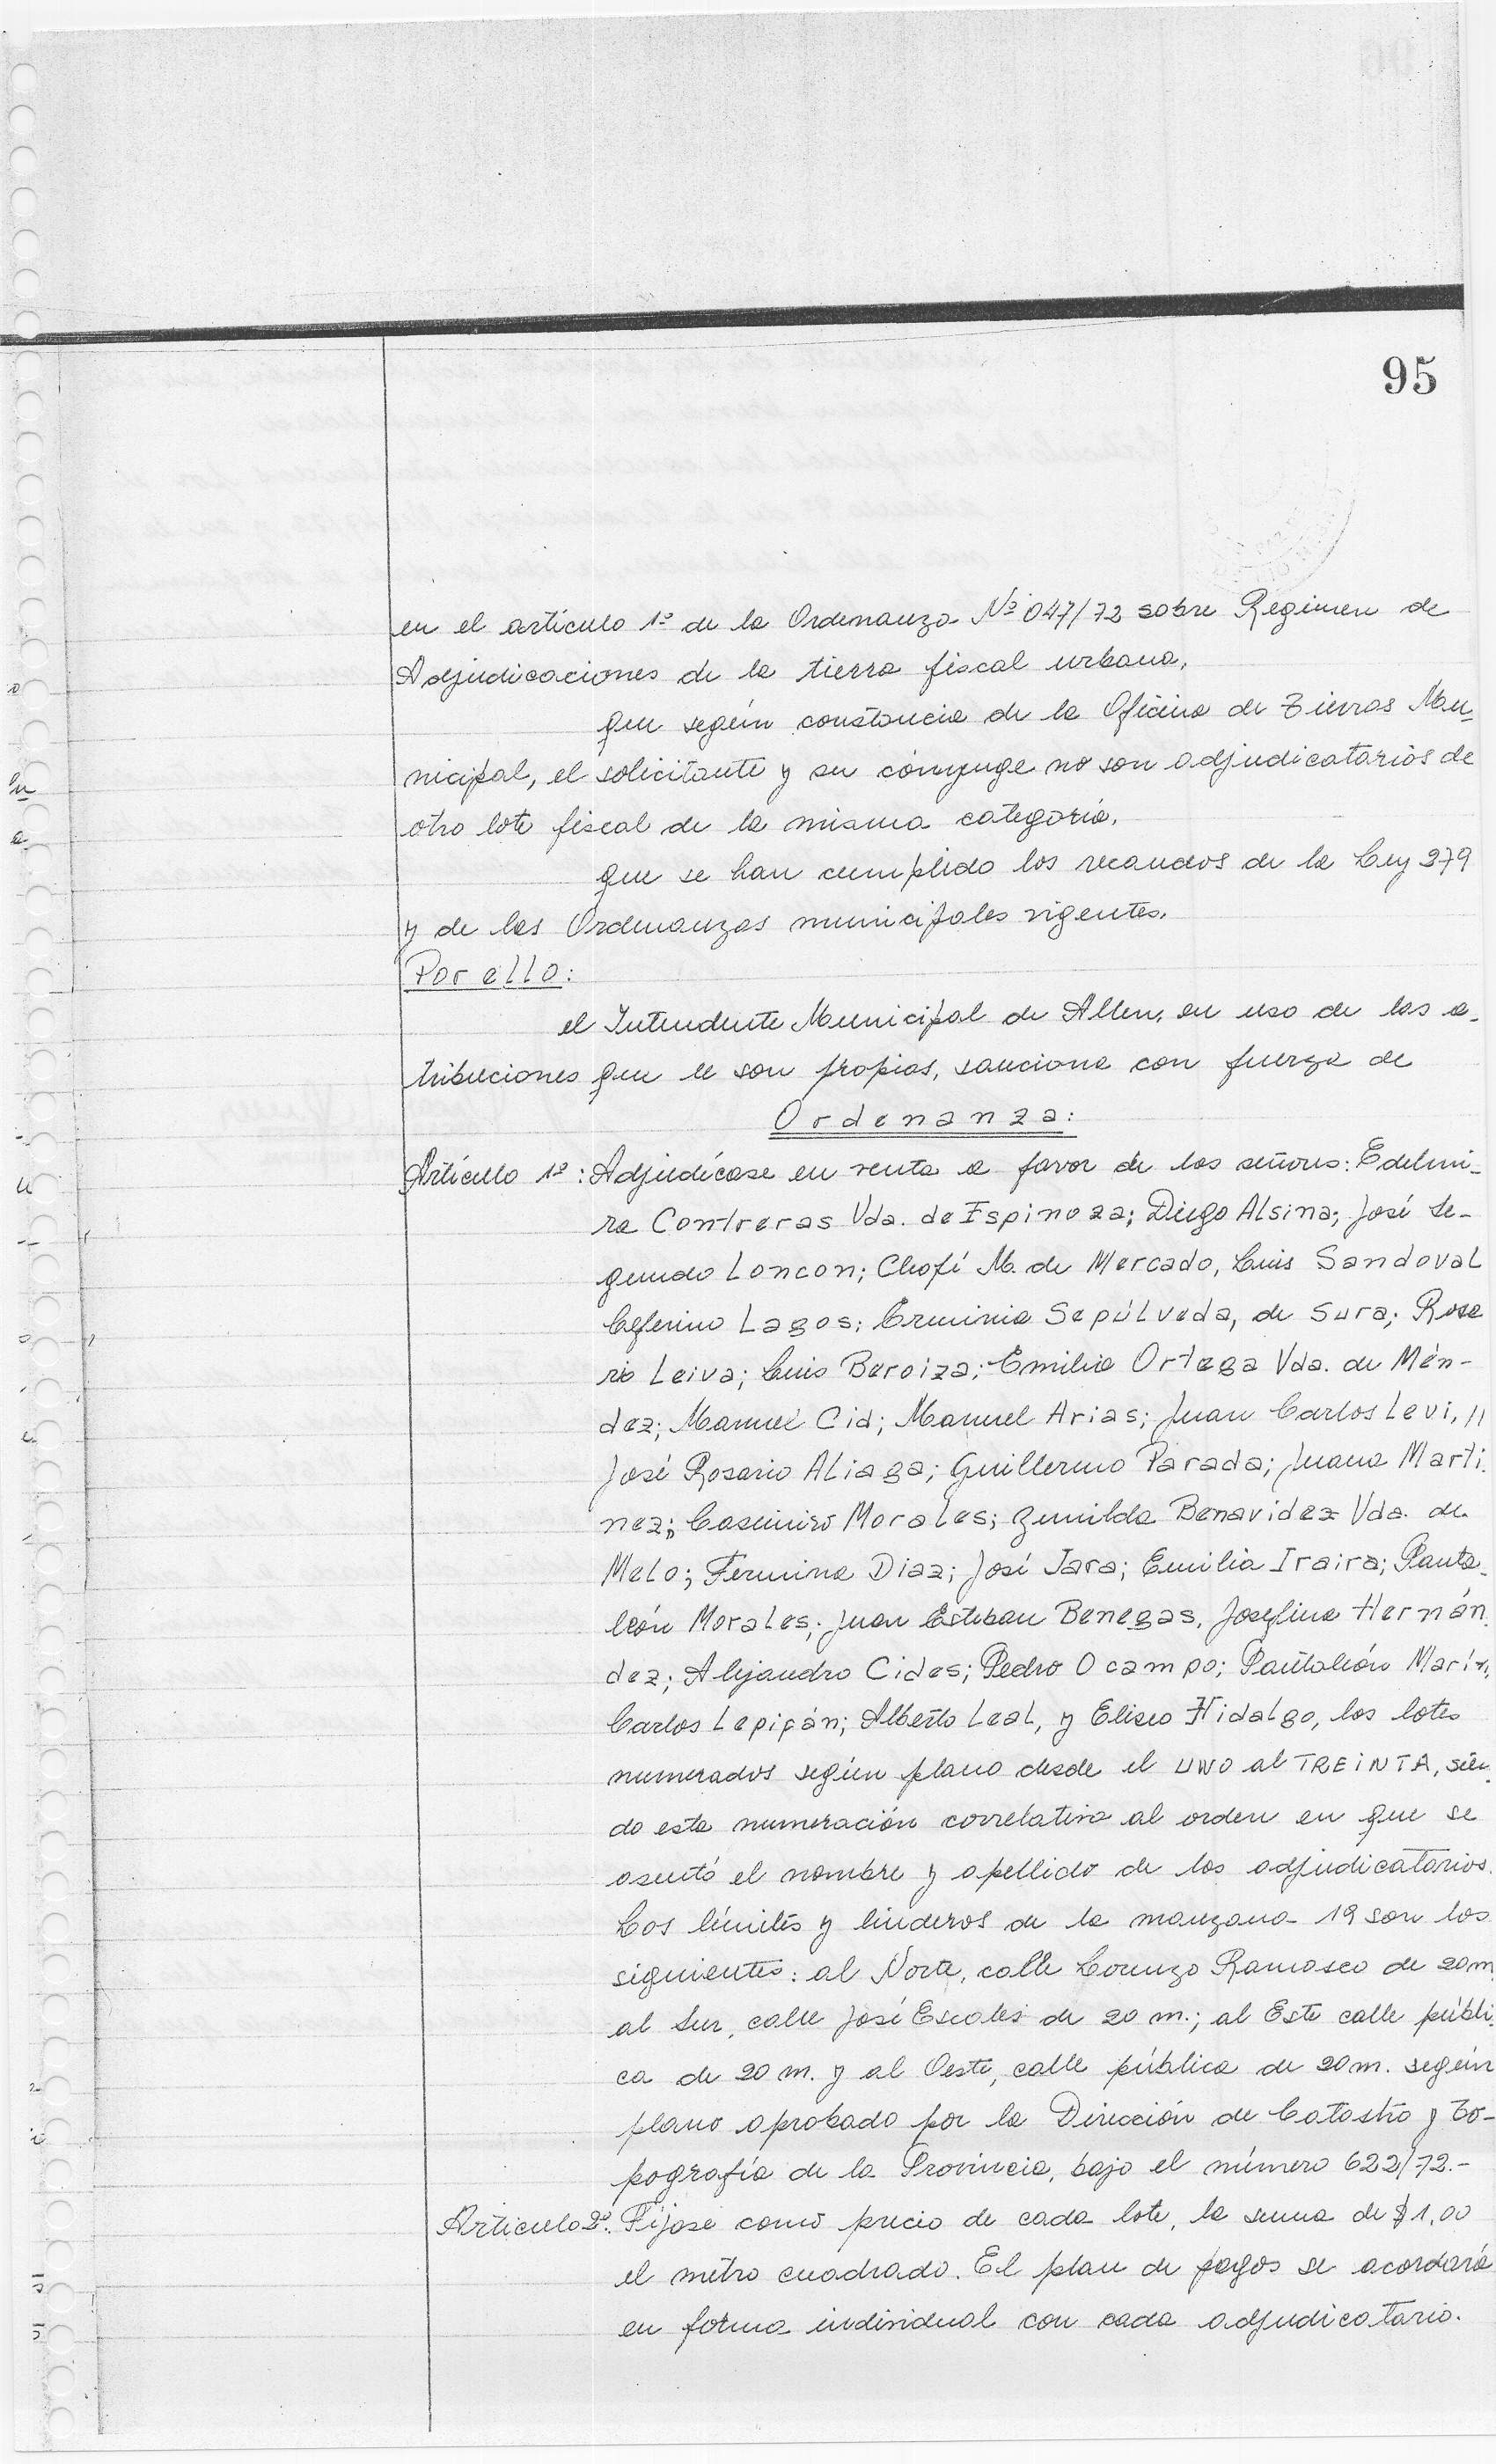 95
en el artículo 1º de la Ordenanza Nº 047/72 sobre Regimen de
Adjudicaciones de la tierra fiscal urbana,
que según constancia de la Oficina de Tierras Mu-
nicipal, el solicitante y su cónyuge no son adjudicatarios de
otro lote fiscal de la misma categoría.
que se han cumplido los recaudos de la Ley 279
y de las Ordenanzas municipales vigentes.
Por ello:
el Intendente Municipal de Allen, en uso de las a-
tribuciones que le son propias, sanciona con fuerza de
Ordenanza:
Artículo 1º: Adjudícase en venta a favor de los señores: Edelmi-
ra Contreras Vda. de Espinoza; Diego Alsina; José Se-
gundo Loncon; Chofí M. de Mercado, Luis Sandoval
Ceferino Lagos; Erminia Sepúlveda, de Sura; Rosa
rio Leiva; Luis Beroiza; Emilia Ortega Vda. de Mén-
dez; Manuel Cid; Manuel Arias; Juan Carlos Levi, //
José Rosario Aliaga; Guillermo Parada; Juana Marti.
nez; Casimiro Morales; Zemilda Benavidez Vda. de
Melo; Fermina Diaz; José Jara; Emilia Iraira; Panta-
león Morales; Juan Esteban Benegas, Josefina Hernán
dez; Alejandro Cides; Pedro Ocampo; Pantaleón Marín,
Carlos Lepipán; Alberto Leal, y Eliseo Hidalgo, los lotes
numerados según plano desde el UNO al TREINTA, sien-
do esta numeración correlativa al orden en que se
asentó el nombre y apellido de los adjudicatarios.
Los límites y linderos de la manzana 19 son los
siguientes: al Norte, calle Lorenzo Ramasco de 20 m.
al Sur, calle José Escales de 20 m.; al Este calle públi-
ca de 20 m. y al Oeste, calle pública de 20 m. según
plano aprobado por la Dirección de Catastro y To-
pografía de la Provincia, bajo el número 622/72.-
Artículo 2º: Fíjase como precio de cada lote, la suma de $1,00
el metro cuadrado. El plan de pagos se acordará
en forma individual con cada adjudicatario.